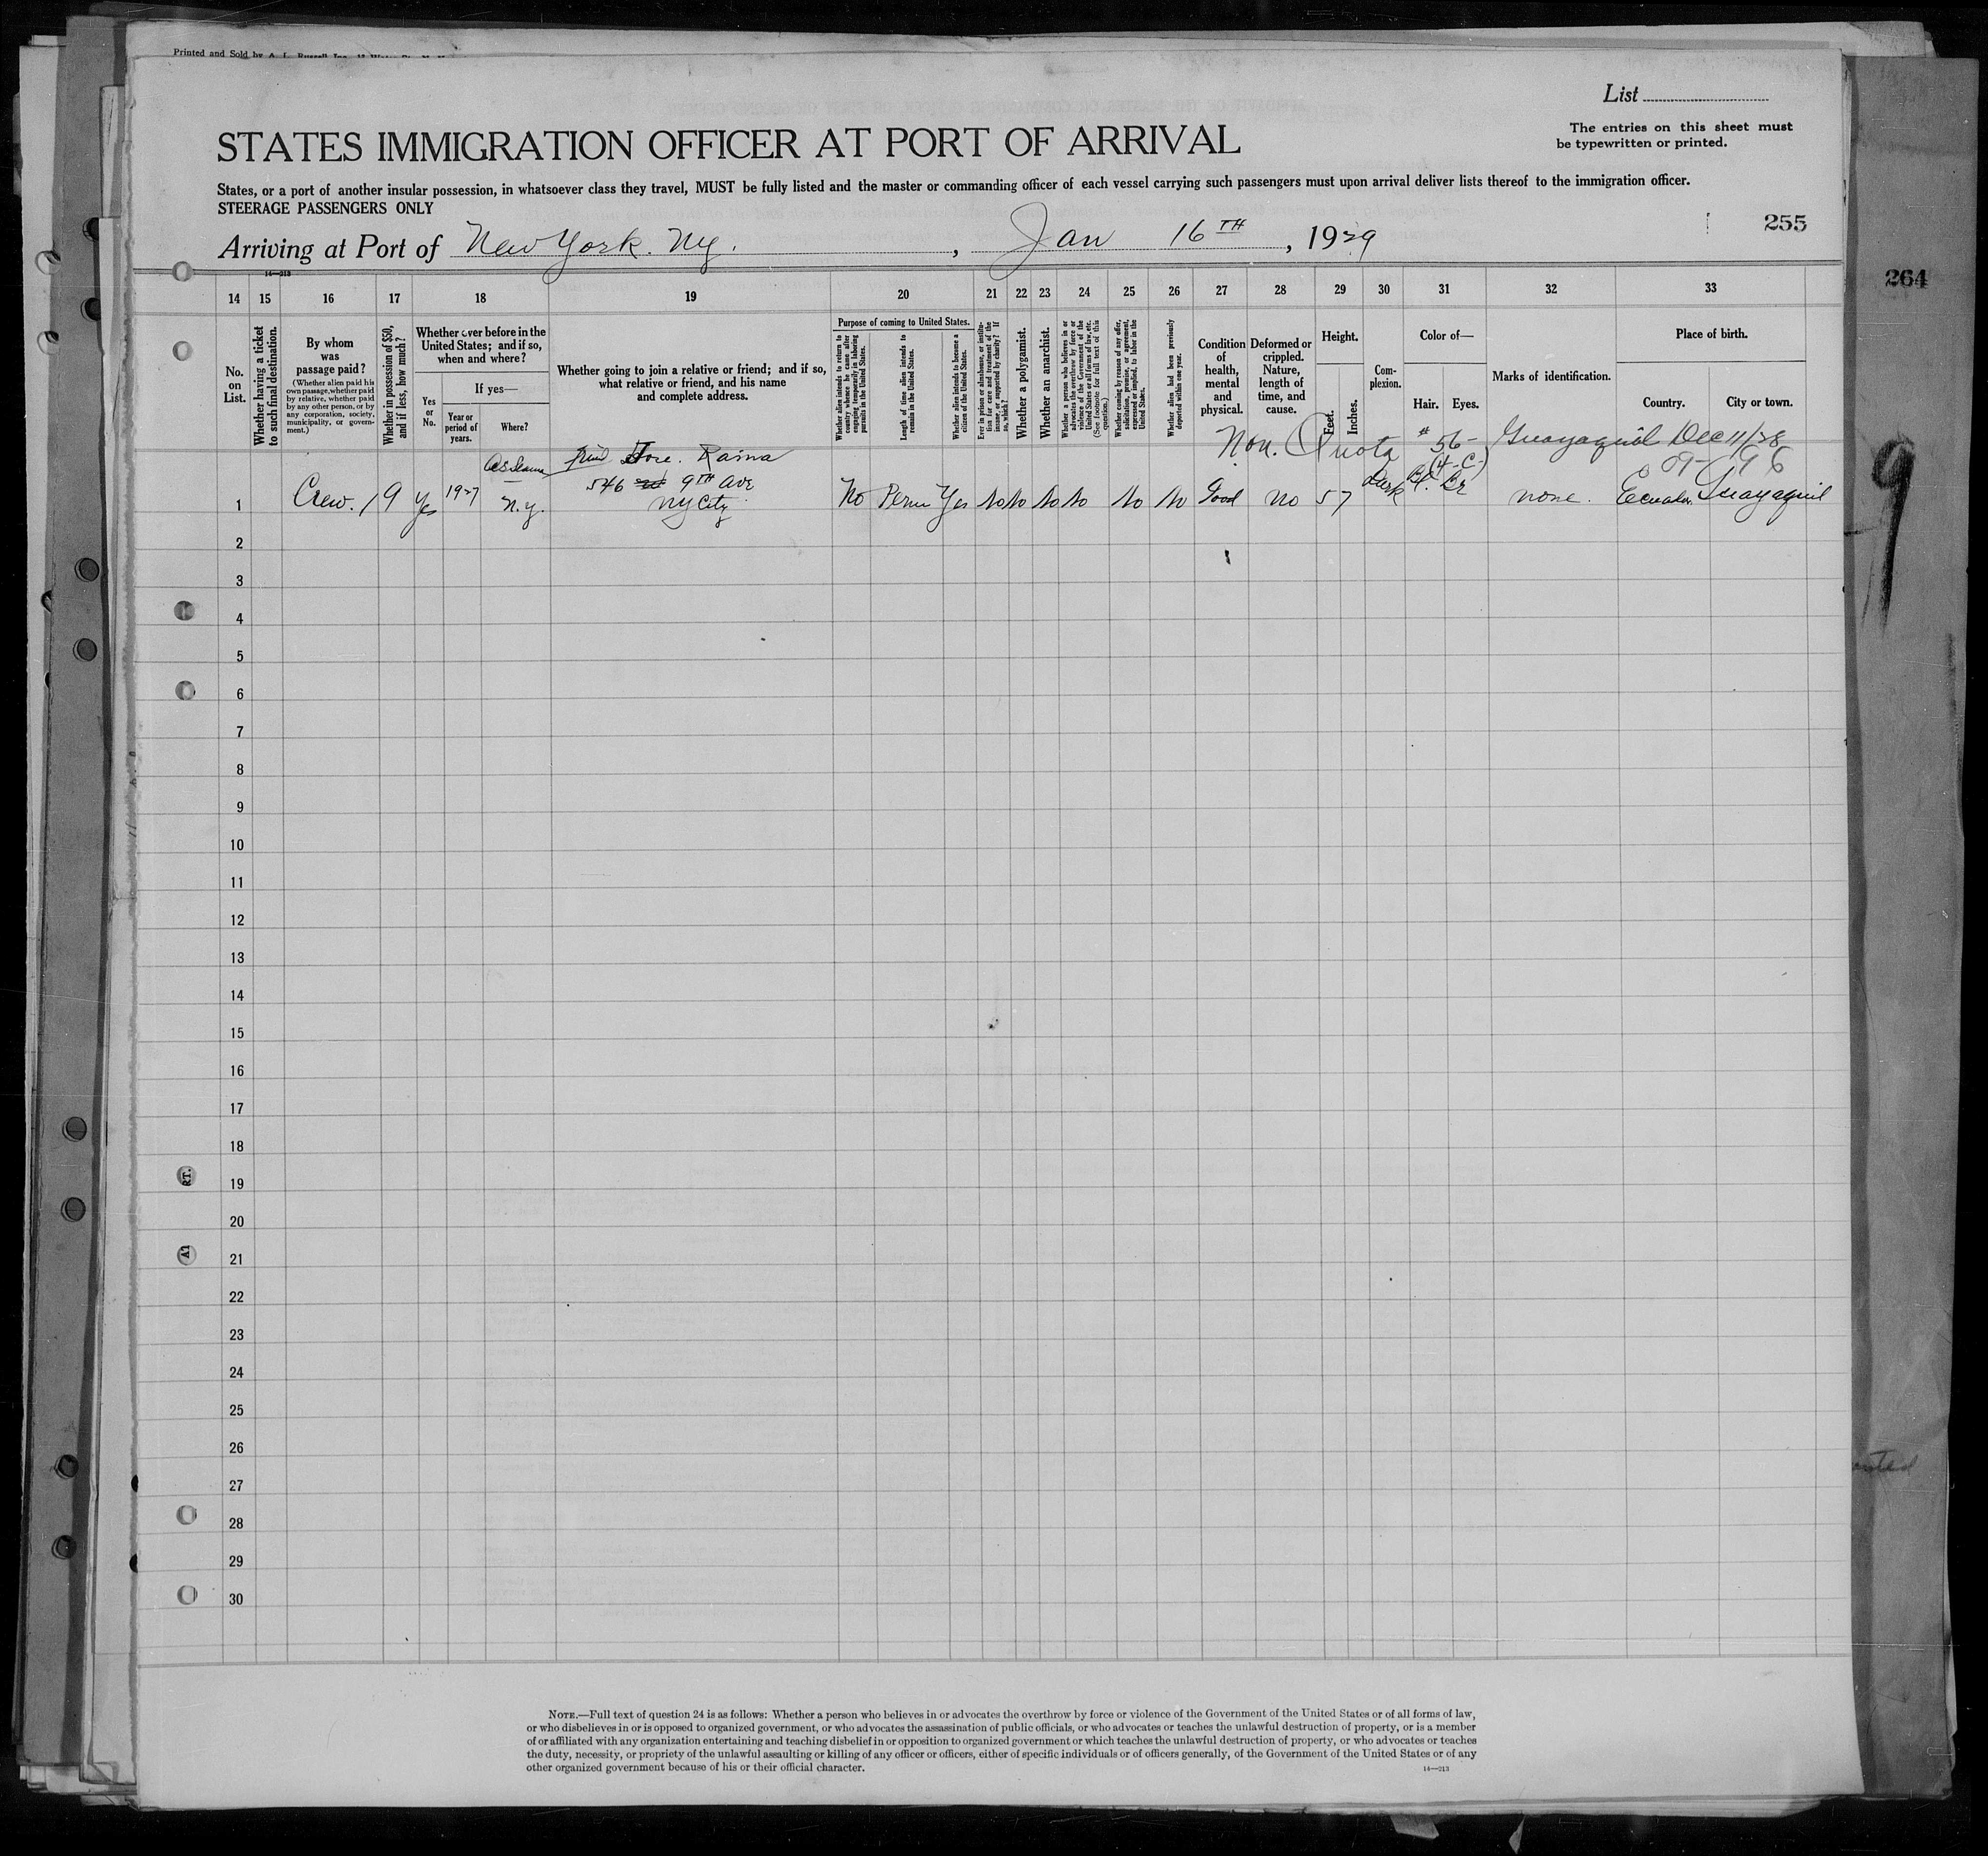 Printed and Sold by A. L. Russell Inc.
List
The entries on this sheet must
be typewritten or printed.
STATES IMMIGRATION OFFICER AT PORT OF ARRIVAL
States, or a port of another insular possession, in whatsoever class they travel, MUST be fully listed and the master or commanding officer of each vessel carrying such passengers must upon arrival deliver lists thereof to the immigration officer.
STEERAGE PASSENGERS ONLY
255
Arriving at Port of New York. Ny. , Jan 16TH , 1929
14—213
264
14 15 16 17 18 19 20 21 22 23 24 25 26 27 28 29 30 31 32 33
No. on List.
Whether having a ticket to such final destination.
By whom was passage paid?
(Whether alien paid his own passage, whether paid by relative, whether paid by any other person, or by any corporation, society, municipality, or government.)
Whether in possession of $50, and if less, how much?
Whether ever before in the United States; and if so, when and where?
If yes—
Yes or No.
Year or period of years.
Where?
Whether going to join a relative or friend; and if so, what relative or friend, and his name and complete address.
Purpose of coming to United States.
Whether alien intends to return to country whence he came after engaging temporarily in laboring pursuits in the United States.
Length of time alien intends to remain in the United States.
Whether alien intends to become a citizen of the United States.
Ever in prison or almshouse, or institution for care and treatment of the insane, or supported by charity? If so, which?
Whether a polygamist.
Whether an anarchist.
Whether a person who believes in or advocates the overthrow by force or violence of the Government of the United States or all forms of law, etc. (See footnote for full text of this question.)
Whether coming by reason of any offer, solicitation, promise, or agreement, expressed or implied, to labor in the United States.
Whether alien had been previously deported within one year.
Condition of health, mental and physical.
Deformed or crippled. Nature, length of time, and cause.
Height.
Feet.
Inches.
Complexion.
Color of—
Hair.
Eyes.
Marks of identification.
Place of birth.
Country.
City or town.
Non. Quota # 56- Guayaquil Dec 11/28
(4-C-)
As Seaman Jose. Raina
546 9TH Ave
1 Crew. 19 Yes 1927 N.Y. NY City No Perm Yes No No No No No No Good no 5 7 Dark Bl. Br none. Ecuador Guayaquil
2
3
4
5
6
7
8
9
10
11
12
13
14
15
16
17
18
RT.
19
20
A1
21
22
23
24
25
26
27
28
29
30
9
NOTE.—Full text of question 24 is as follows: Whether a person who believes in or advocates the overthrow by force or violence of the Government of the United States or of all forms of law,
or who disbelieves in or is opposed to organized government, or who advocates the assassination of public officials, or who advocates or teaches the unlawful destruction of property, or is a member
of or affiliated with any organization entertaining and teaching disbelief in or opposition to organized government or which teaches the unlawful destruction of property, or who advocates or teaches
the duty, necessity, or propriety of the unlawful assaulting or killing of any officer or officers, either of specific individuals or of officers generally, of the Government of the United States or of any
other organized government because of his or their official character.
14—213